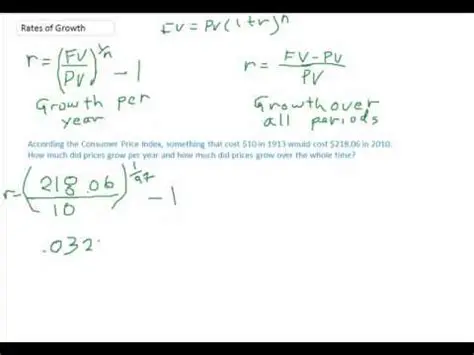 Rates of Growth
FV = PV(1+r)^n
r = (FV/PV)^1/n - 1
r = FV-PV/PV
Growth per year
Growth over all periods
According the Consumer Price Index, something that cost $10 in 1913 would cost $218.06 in 2010.
How much did prices grow per year and how much did prices grow over the whole time?
r = (218.06/10)^1/97 - 1
.032